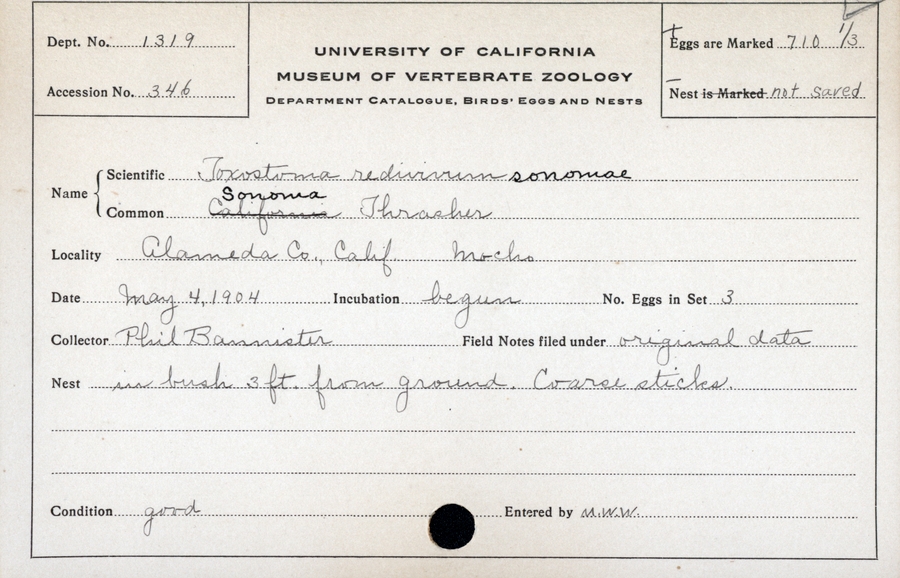 Dept. No. 1319
Accession No. 346
UNIVERSITY OF CALIFORNIA
MUSEUM OF VERTEBRATE ZOOLOGY
DEPARTMENT CATALOGUE, BIRDS' EGGS AND NESTS
Eggs are Marked 710 1/3
Nest is Marked not saved
Name
Scientific Toxostoma redivivum sonomae
Sonoma
Common California Thrasher
Locality Alameda Co., Calif. Mocho
Date May 4, 1904 Incubation begun No. Eggs in Set 3
Collector Phil Bannister Field Notes filed under original data
Nest in bush 3 ft. from ground. Coarse sticks.
Condition good Entered by M.W.W.